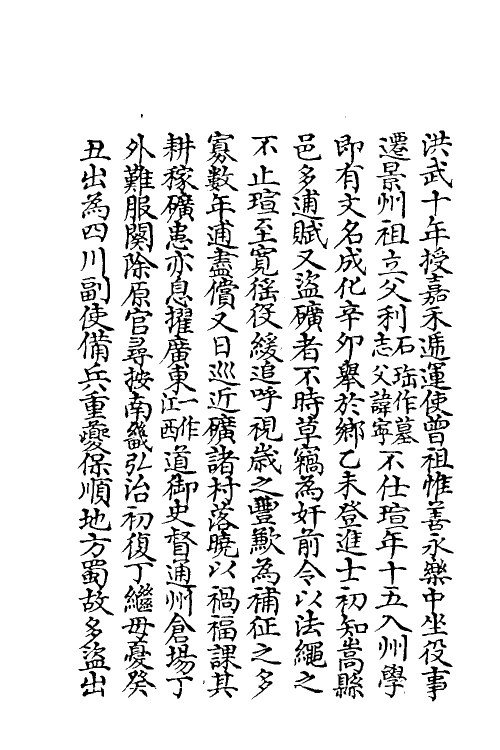 洪武十年授嘉禾遞運使曾祖惟善永樂中坐役事
遷景州祖立父利石珤作墓志父諱寧不仕瑄年十五入州學
即有文名成化辛卯舉於鄉乙未登進士初知嵩縣
邑多逋賦又盜礦者不時草竊為奸前令以法繩之
不止瑄至寬徭役緩追呼視歲之豐歉為補征之多
寡數年逋盡償又日巡近礦諸村落曉以禍福課其
耕稼礦患亦息擢廣東一作江西道御史督通州倉場丁
外難服闋除原官尋按南畿弘治初復丁繼母憂癸
丑出為四川副使備兵重夔保順地方蜀故多盜出